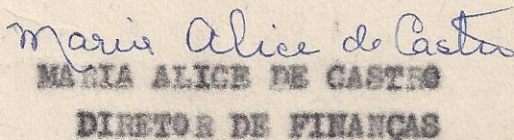 Maria Alice de Castro
MARIA ALICE DE CASTRO
DIRETOR DE FINANCAS